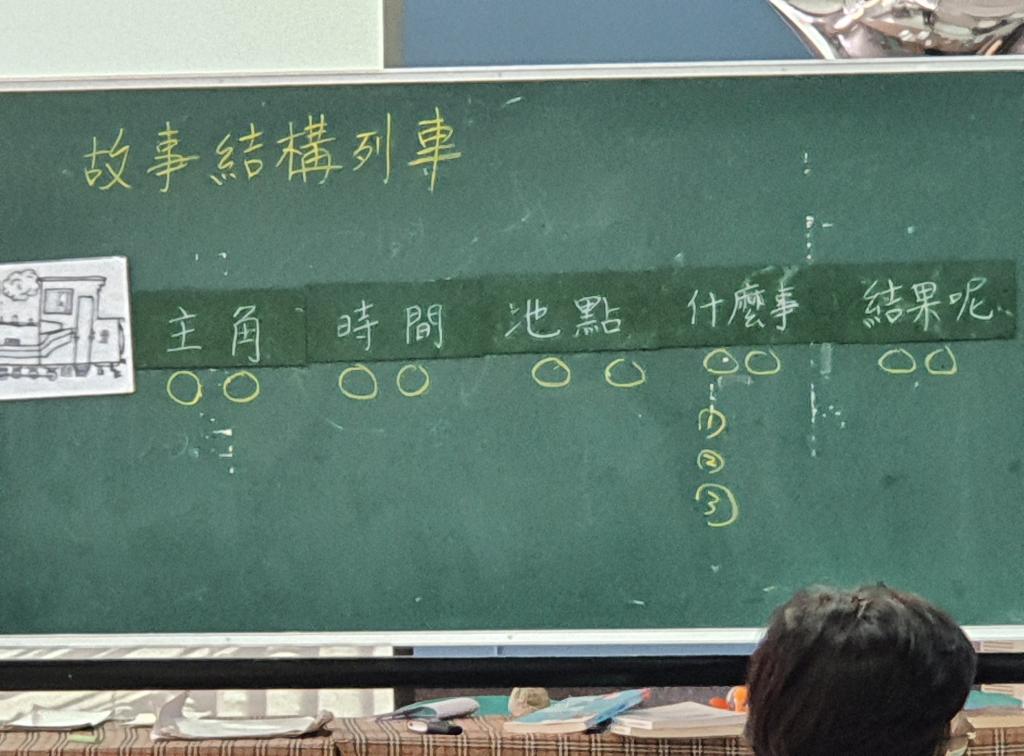 故事結構列車
主角 時間 池點 什麼事 結果呢
①
②
③